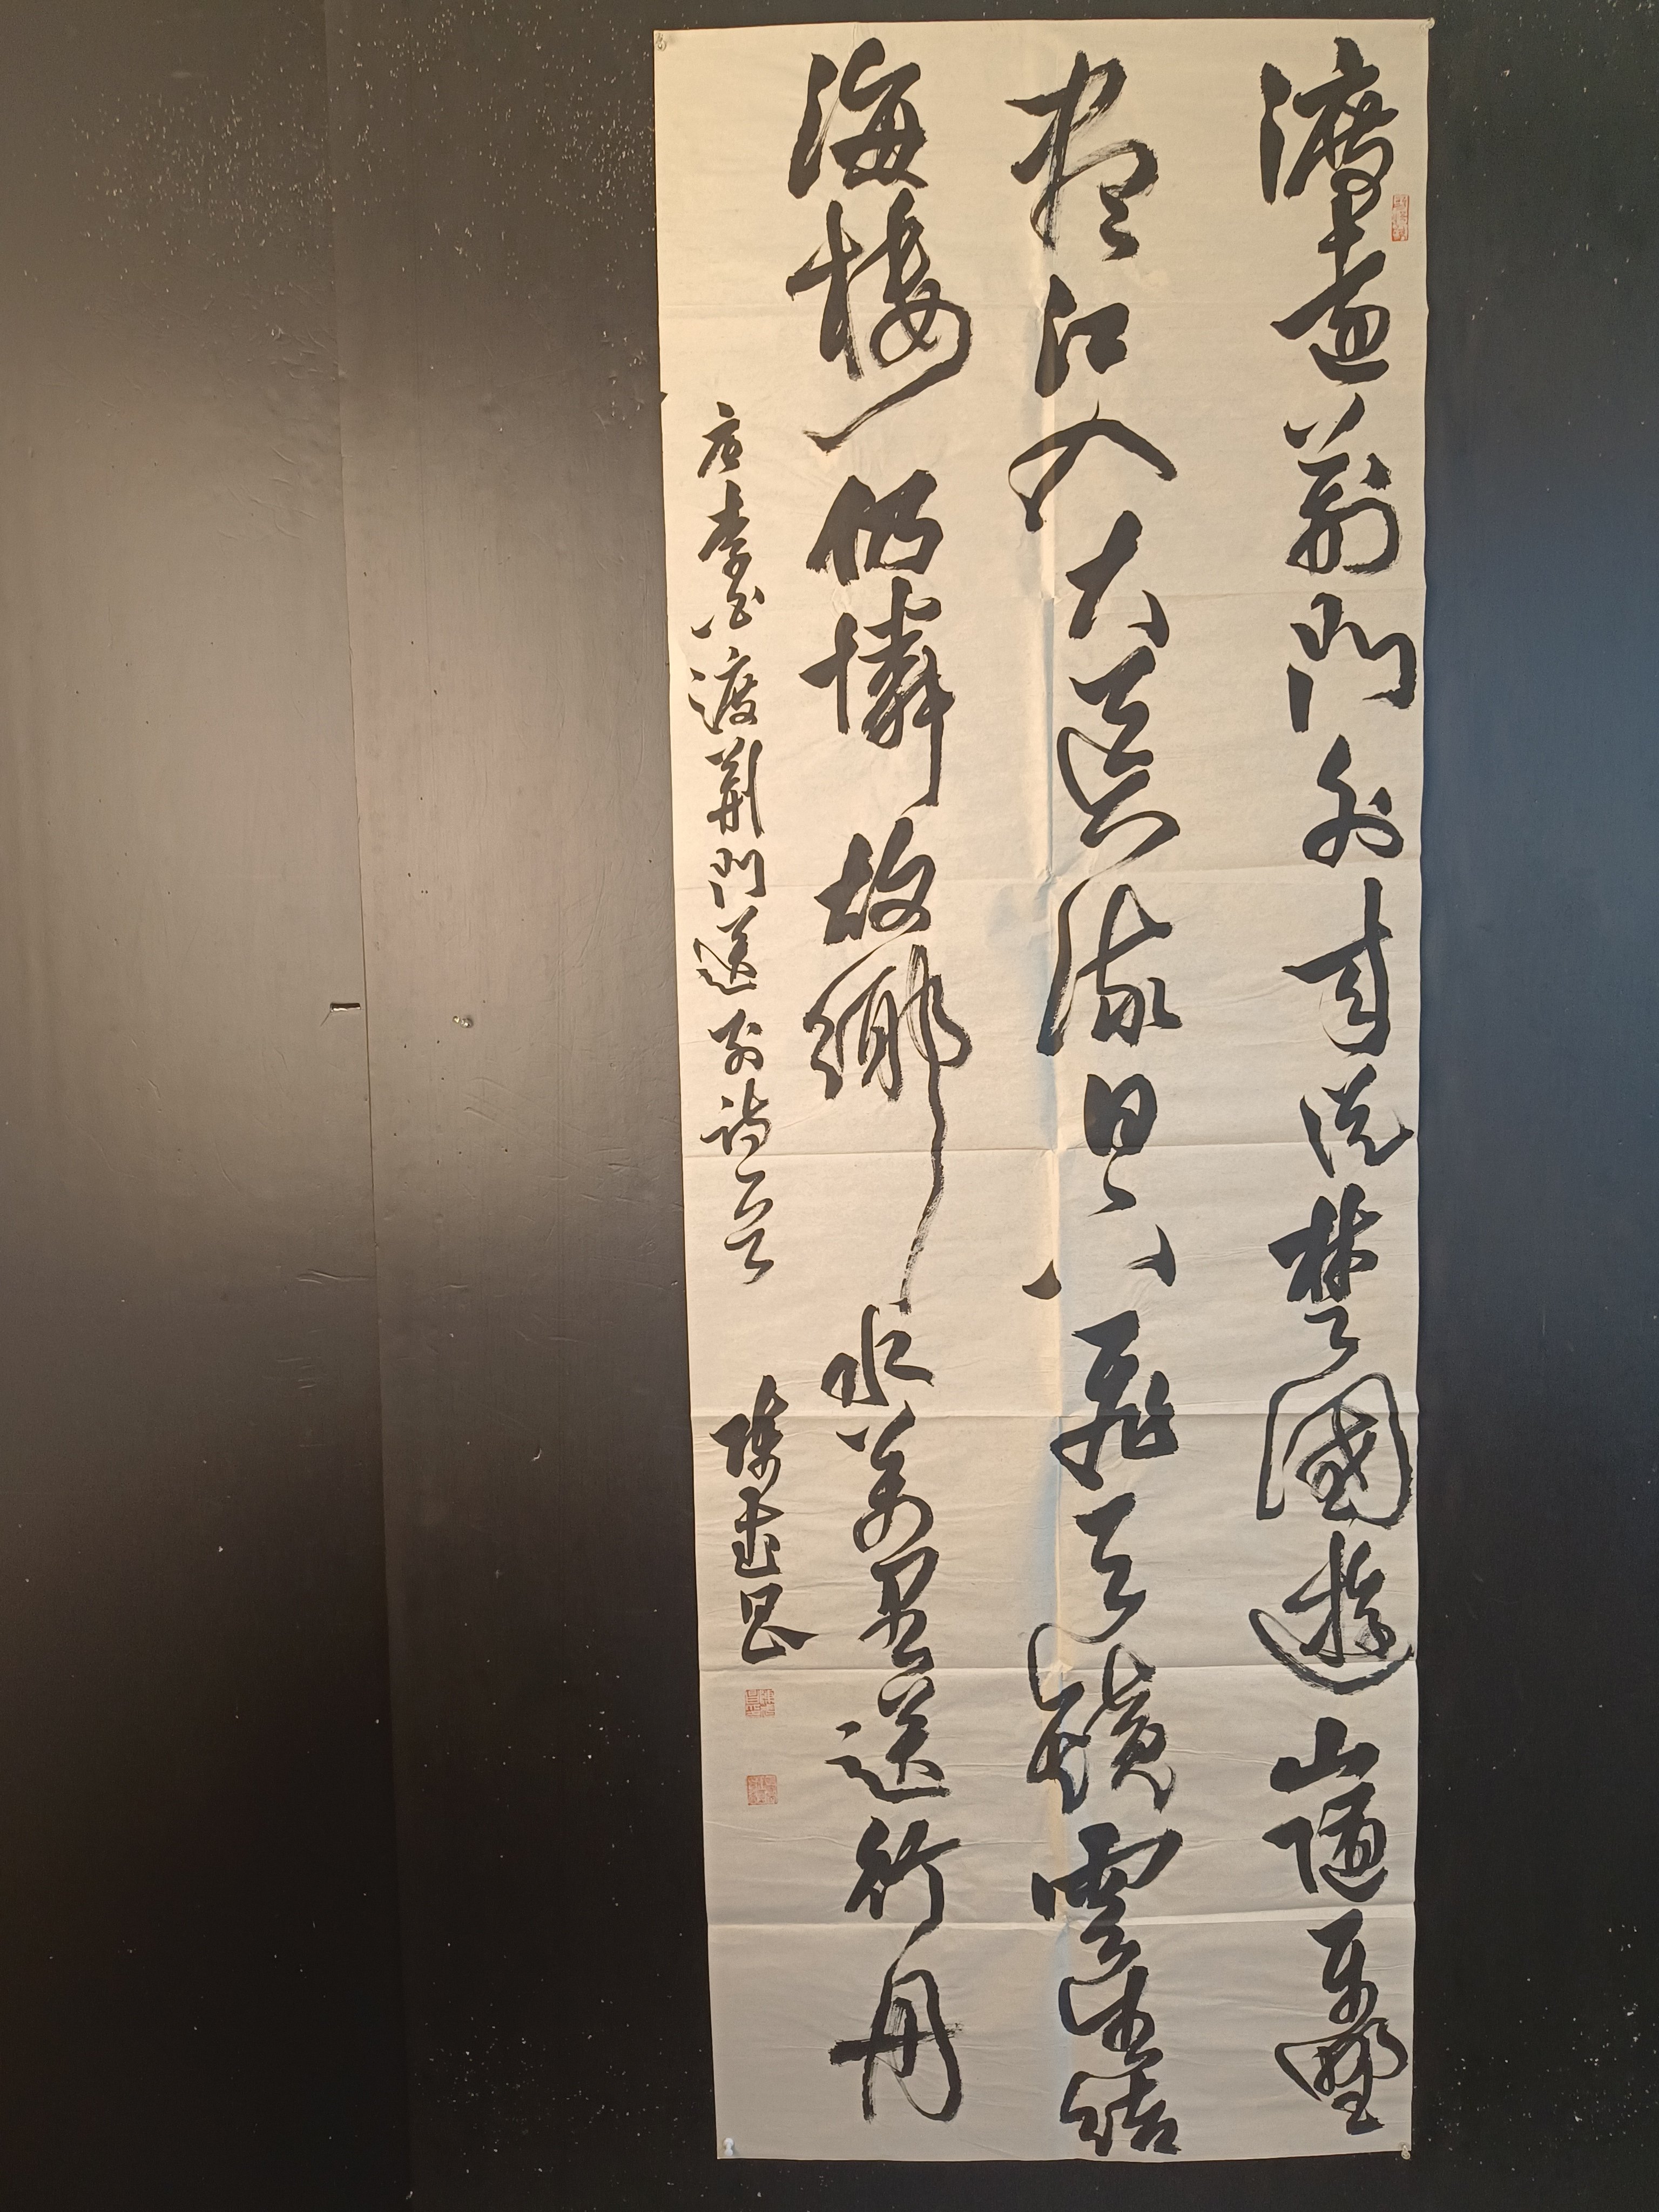 渡遠荊門外來從楚國遊山隨平野
盡江入大荒流月下飛天鏡雲生結
海樓仍憐故鄉水萬里送行舟
唐李白渡荊門送別詩一首 陳